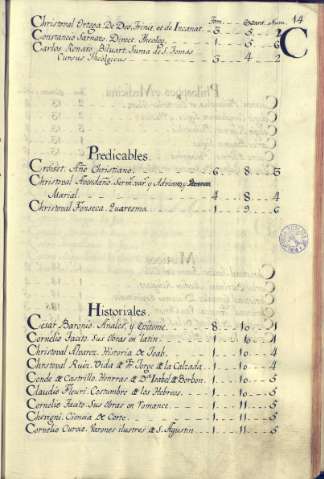 Tom. Estant. Num. 14
Christoval Ortega De Deo, Trinit. et de Incarnat. 3 . . 5 . . 2
Constancio Sarnato. Direct. Theolog. 1 . . 5 . . 6
Carlos Renato, Biluart. Suma de S. Tomas
Cursus Theolgicus 3 . . 4 . . 2
C
Predicables
Croiset. Año Christiano. 6 . . 8 . . 3
Christoval Avendaño. Serm. var. y Adviento y
Marial 4 . . 8 . . 4
Christoval Fonseca. Quaresma 1 . . 9 . . 6
Historiales
Cesar Baronio. Anales, y Epitome. 8 . . 10 . . 1
Cornelio Tacito. Sus Obras en latin. 1 . . 10 . . 1
Christoval Alvarez. Historia de 1 . . 10 . . 4
Christoval Ruiz. Vida de Fr. Jorge de la Calzada 1 . . 10 . . 4
Conde de Castrillo. Honrras de D.ª Isabel de Borbon. 1 . . 10 . . 5
Claudio Fleuri. Costumbre de los Hebreos. 1 . . 10 . . 5
Cornelio Tacito. Sus Obras en Romance. 1 . . 10 . . 5
Chevigni. Ciencia de Corte. 1 . . 11 . . 5
Cornelio Curcio. Varones ilustres de S. Agustin 1 . . 11 . . 5